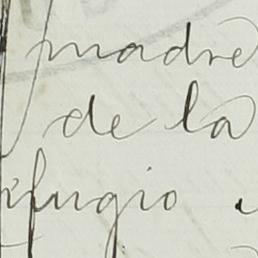 madre
de la
efugio